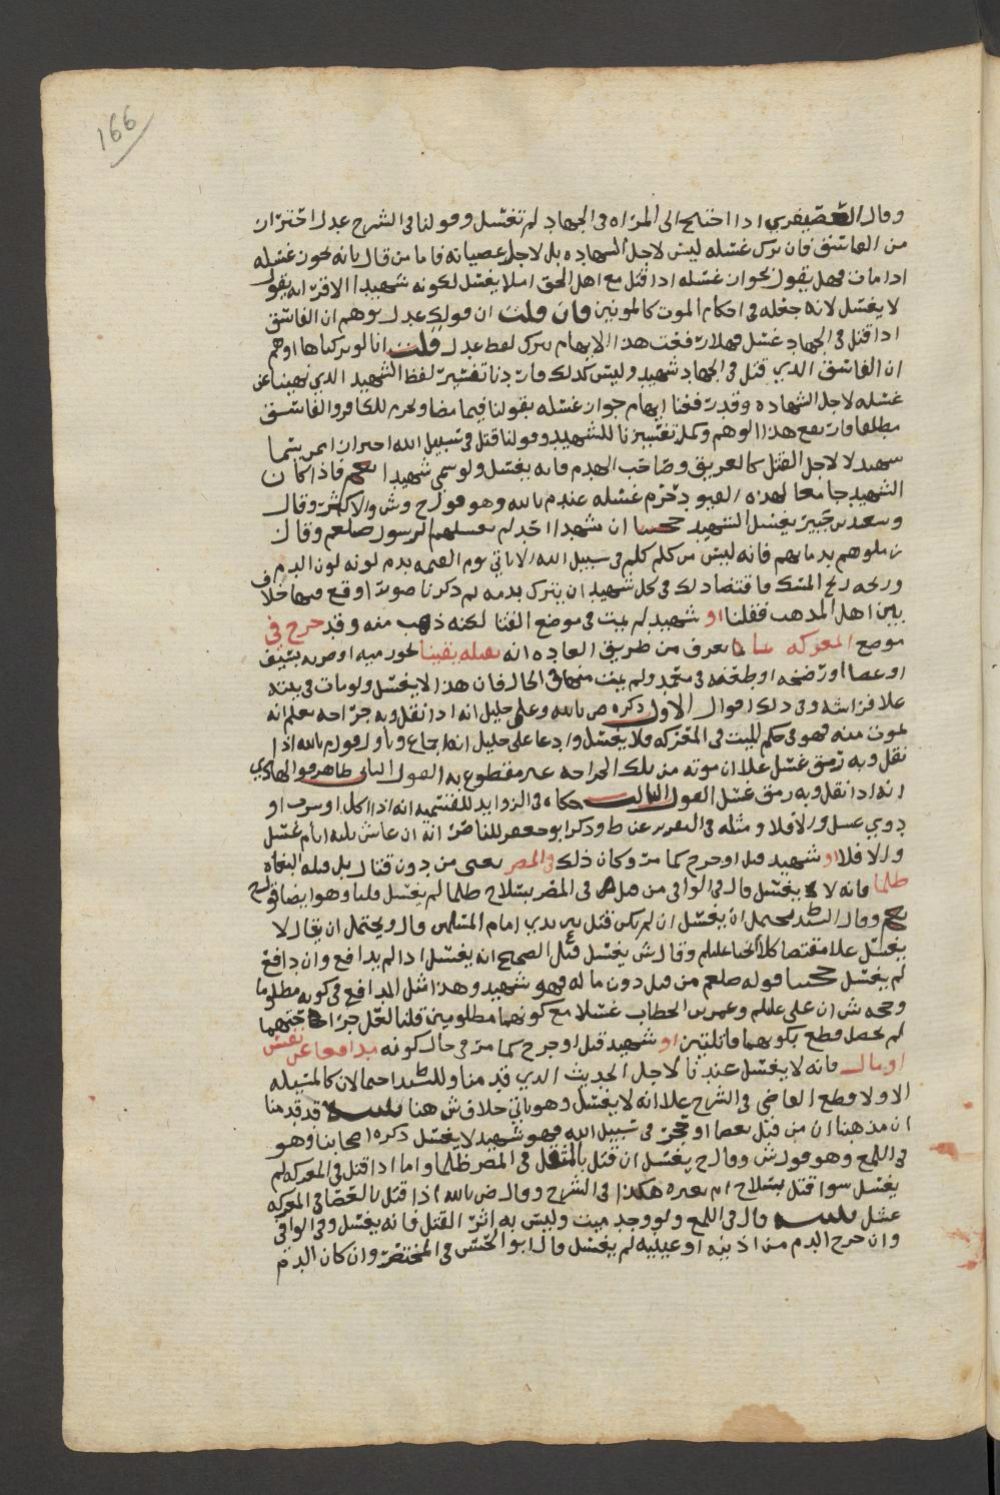 166
وقال العصيفري اذا احتيج الى المراه في الجهاد لم تغسل وقولنا في الشرح عدل احترازا
من الفاسق فان ترك غسله ليس لاجل الشهاده بل لاجل عصيانه فاما من قال بانه يجوز غسله
اذا مات فهل يقول بجواز غسله اذا قتل مع اهل الحق ام لا يغسل لكونه شهيدا الاقرب انه يقول
لا يغسل لانه جعله في احكام الموت كالمومنين فان قلت ان قولك عدل يوهم ان الفاسق
اذا قتل في الجهاد غسل فهلا رفعت هذا الايهام بترك لفظ عدل قلت انا لو تركناها اوهم
ان الفاسق الذي قتل في الجهاد شهيد وليس كذلك فاردنا تفسير لفظ الشهيد الذي نهينا عن
غسله لاجل الشهاده وقد رفعنا ايهام جواز غسله بقولنا فيما مضا ويحرم للكافر والفاسق
مطلقا فارتفع هذا الوهم وكمل تفسيرنا للشهيد وقولنا قتل في سبيل الله احتراز ممن يسما
شهيد لا لاجل القتل كالغريق وصاحب الهدم فانه يغسل ولو سمي شهيدا فاذا كان
الشهيد جامعا لهذه القيود حرم غسله عندم بالله وهو قول ح وش والاكثر وقال
وسعيد بن جبير يغسل الشهيد حجتنا ان شهدا احد لم يغسلهم الرسول صلعم وقال
زملوهم بدمايهم فانه ليس من كلم كلم في سبيل الله الا ياتي يوم القيمه بدم لونه لون الدم
وريحه ريح المسك فاقتضا ذلك في كل شهيد ان يترك بدمه ثم ذكرنا صورتا وقع فيها خلاف
بين اهل المذهب فقلنا او شهيد لم يمت في موضع القتل لكنه ذهب منه وقد جرح في
موضع المعركه بما يعرف من طريق العاده انه يقتله يقينا نحو رميه او ضربه بسيف
او عصا او رضخه او طعنه في ولم يمت منها في الحال فان هذا لا يغسل ولو مات في بيته
علا فراشه وفي ذلك اقوال الاول ذكره ص بالله وعلي خليل انه اذا نقل وبه جراحه يعلم انه
يموت منه فهو في حكم الميت في المعركه فلا يغسل وادعا علي خليل انه اجماع وتاول قول م بالله اذا
نقل وبه رمق غسل علا ان موته من تلك الجراحه غير مقطوع به القول الثاني ظاهر قول الهادي
انه اذا نقل وبه رمق غسل القول الثالث حكاه في الزوايد للقسميه انه اذا اكل او شرب او
دوي غسل والا فلا ومثله في التقرير عن ط وذكر ابو جعفر للناصر انه ان عاش ثلثه ايام غسل
والا فلا او شهيد قتل او جرح كما مر وكان ذلك في المصر يعني من دون قتال بل قتله البغاه
ظلما فانه لا يغسل قال في الوافي من قتل في المصر بسلاح ظلما لم يغسل قلنا وهو ايضا قول ح
وقال يحتمل ان يغسل ان لم يكن قتل بين يدي امام المسلمين قال ويحتمل ان يقال لا
يغسل علا مقتضا كلام وقال ش يغسل قيل الصحيح انه يغسل اذا لم يدافع وان دافع
لم يغسل حجتنا قوله صلعم من قتل دون ماله فهو شهيد وهذا مثل المدافع في كونه مظلوما
وحجه ش ان علي عليلم وعمر بن الخطاب غسلا مع كونهما مظلومين قلنا لعل جراحتهما
لم يحصل قطع بكونهما قاتلتين او شهيد قتل او جرح كما مر في حال كونه مدافعا عن نفس
او مال فانه لا يغسل عندنا لاجل الحديث الذي قدمنا احتمالان كالمسئله
الاولا وقطع القاضي في الشرح علا انه لا يغسل وهو ياتي خلاف ش هنا تنبيه قد قدمنا
ان مذهبنا ان من قتل بعصا او حجر في سبيل الله فهو شهيد لا يغسل ذكره اصحابنا وهو
في اللمع وهو قول ش وقال ح يغسل ان قتل بالمثقل في المصر ظلما واما اذا قتل في المعركه لم
يغسل سوا قتل بسلاح ام بغيره هكذا في الشرح وقال ص بالله اذا قتل بالعصا في المعركه
غسل تنبيه قال في اللمع ولو وجد ميت وليس به اثر القتل فانه يغسل وفي الوافي
وان خرج الدم من اذنيه او عينيه لم يغسل قال ابو الحسن في المختصر وان كان الدم